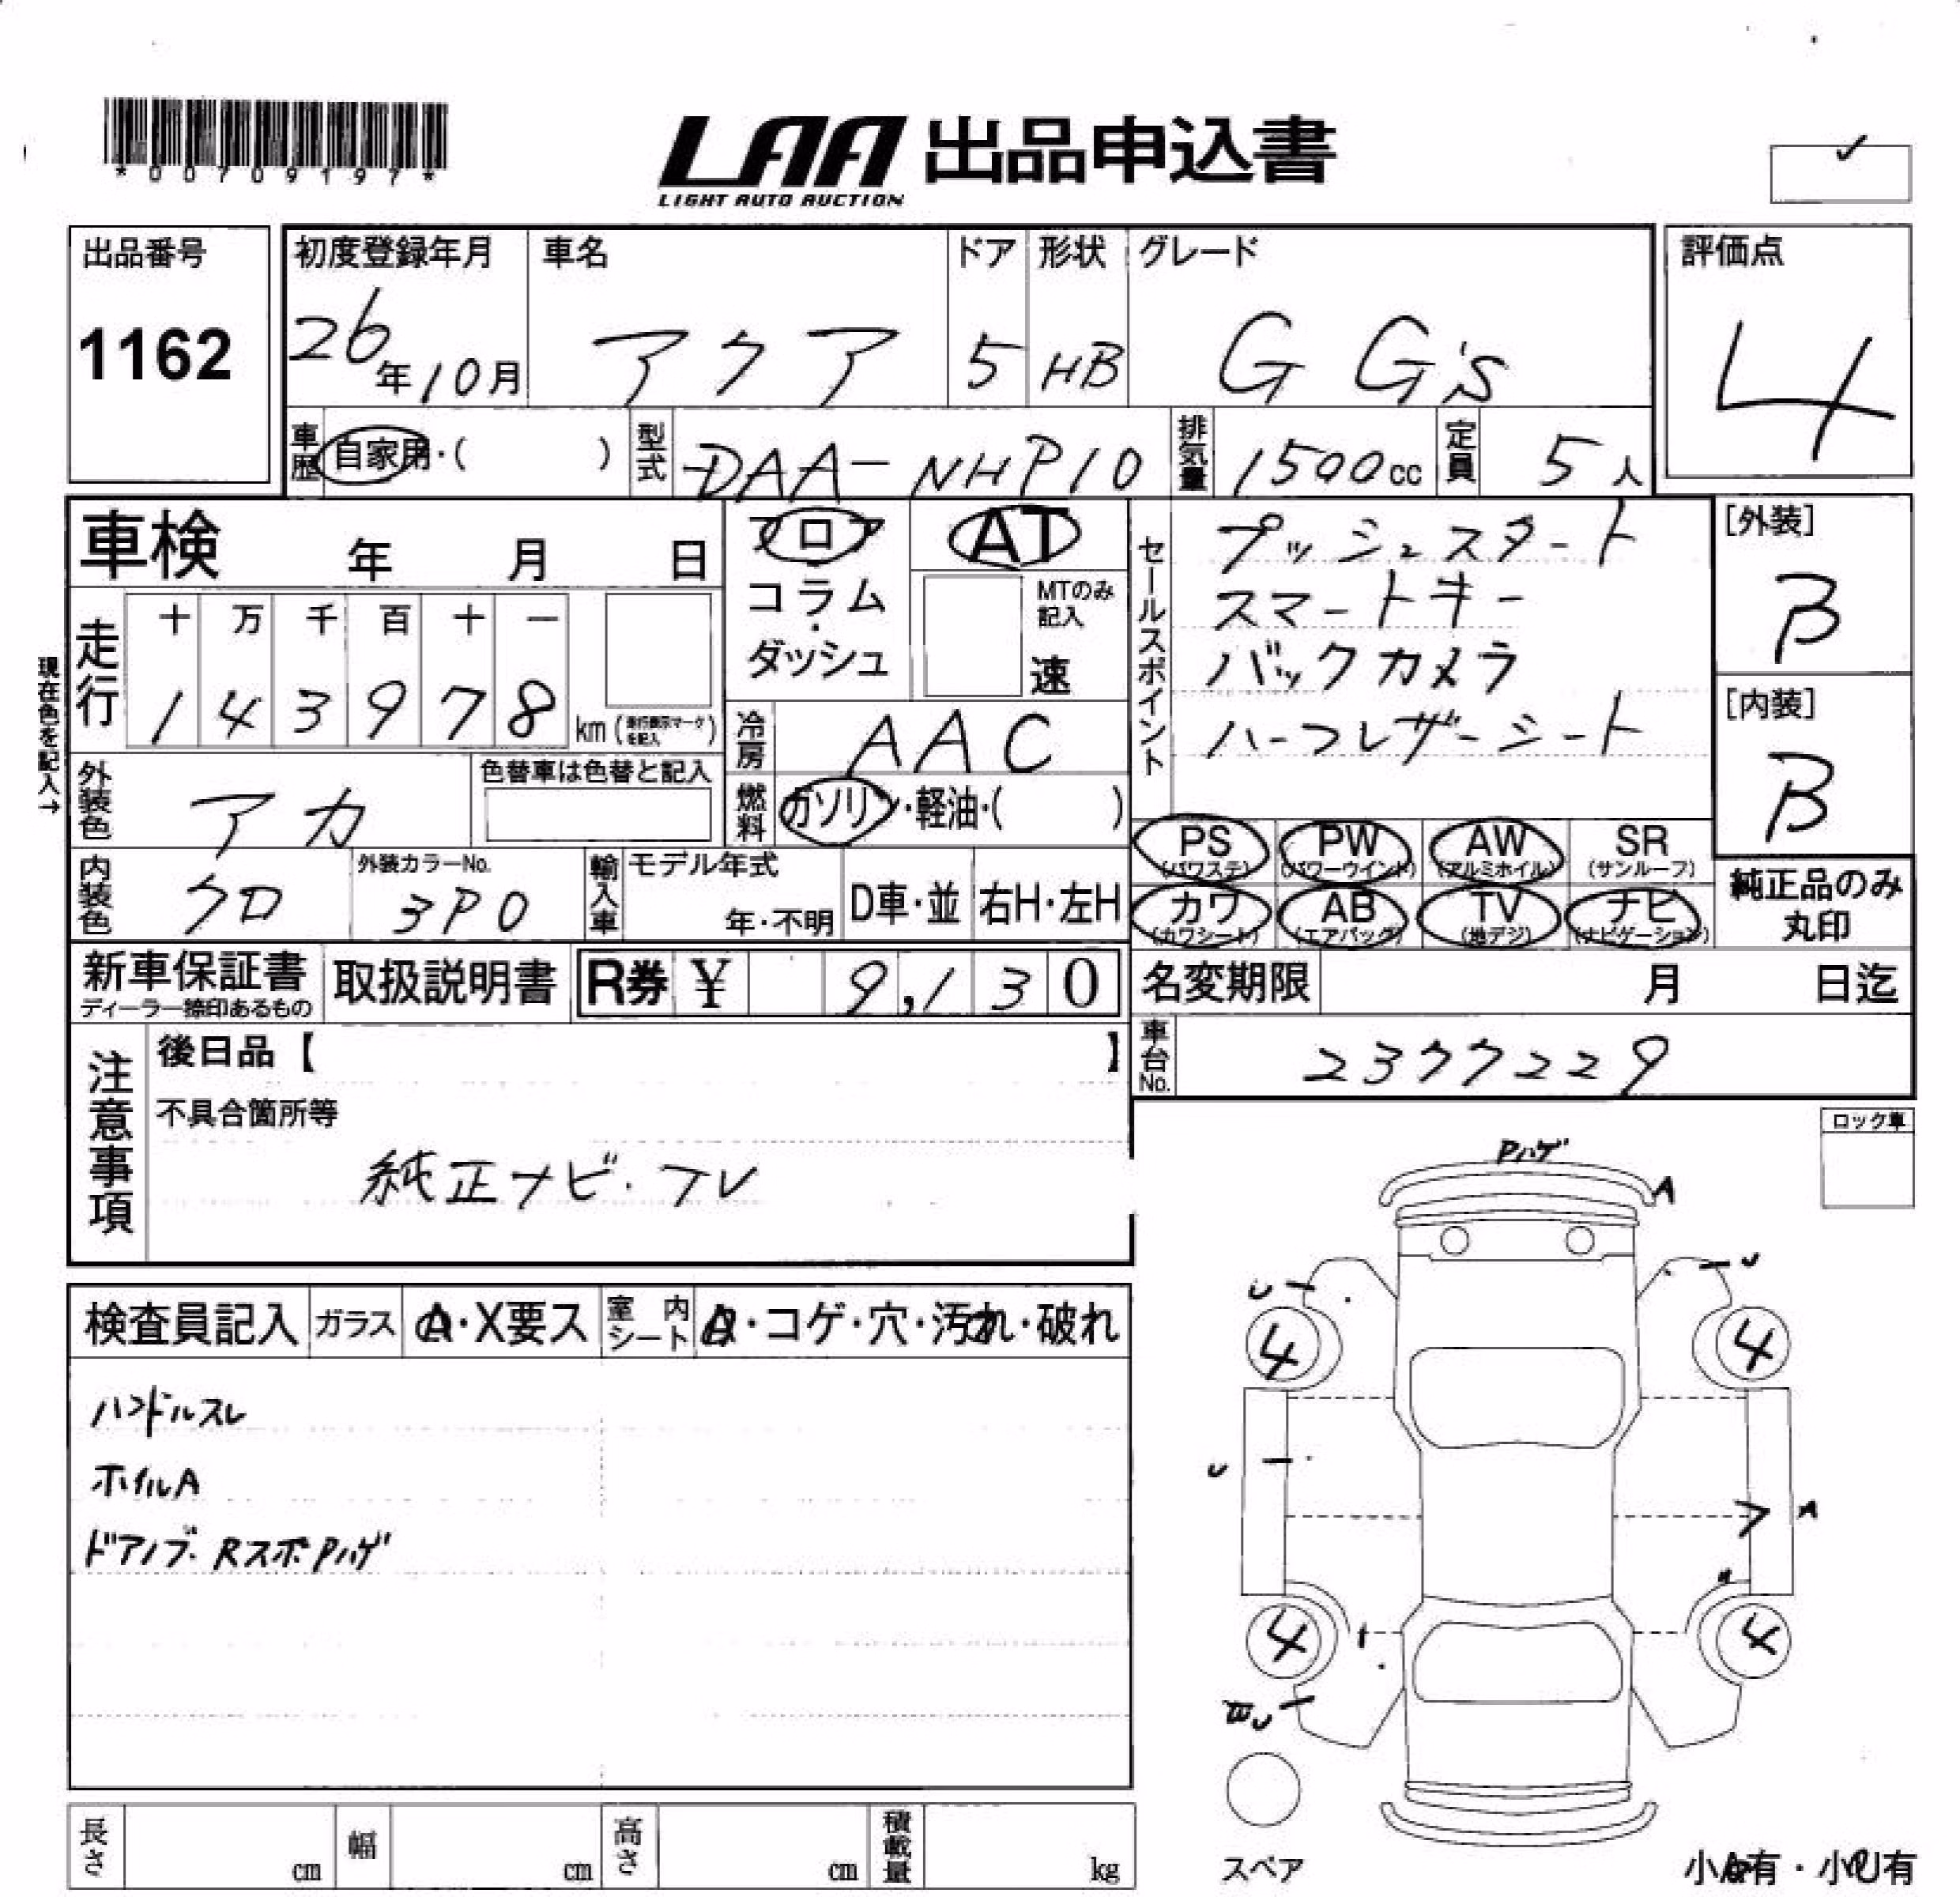 *00709197*
LAA 出品申込書
LIGHT AUTO AUCTION
出品番号
1162
初度登録年月
26年10月
車名
アクア
ドア
5
形状
HB
グレード
G G's
評価点
4
車歴
自家用・( )
型式
DAA-NHP10
排気量
1500cc
定員
5人
車検 年 月 日
フロア
コラム・
ダッシュ
AT
MTのみ
記入
速
セールスポイント
プッシュスタート
スマートキー
バックカメラ
ハーフレザーシート
[外装]
B
[内装]
B
現在色を記入→
走行
十 万 千 百 十 一
1 4 3 9 7 8
km (走行表示マークを記入)
冷房
AAC
外装色
アカ
色替車は色替と記入
燃料
ガソリン・軽油・( )
PS (パワステ)
PW (パワーウインド)
AW (アルミホイル)
SR (サンルーフ)
カワ (カワシート)
AB (エアバッグ)
TV (地デジ)
ナビ (ナビゲーション)
純正品のみ
丸印
内装色
クロ
外装カラーNo.
3P0
輸入車
モデル年式
年・不明
D車・並
右H・左H
新車保証書
ディーラー捺印あるもの
取扱説明書
R券 ¥ 9,130
名変期限 月 日迄
車台No.
2377229
注意事項
後日品【 】
不具合箇所等
純正ナビ・TV
ロック車
検査員記入
ガラス
A・X要ス
室内シート
・コゲ・穴・汚れ・破れ
ハンドルスレ
ホイルA
ドアノブ・RスポPハゲ
Pハゲ
A
U
U
4
4
U
A
4
4
スペア
長さ cm
幅 cm
高さ cm
積載量 kg
小A有・小U有